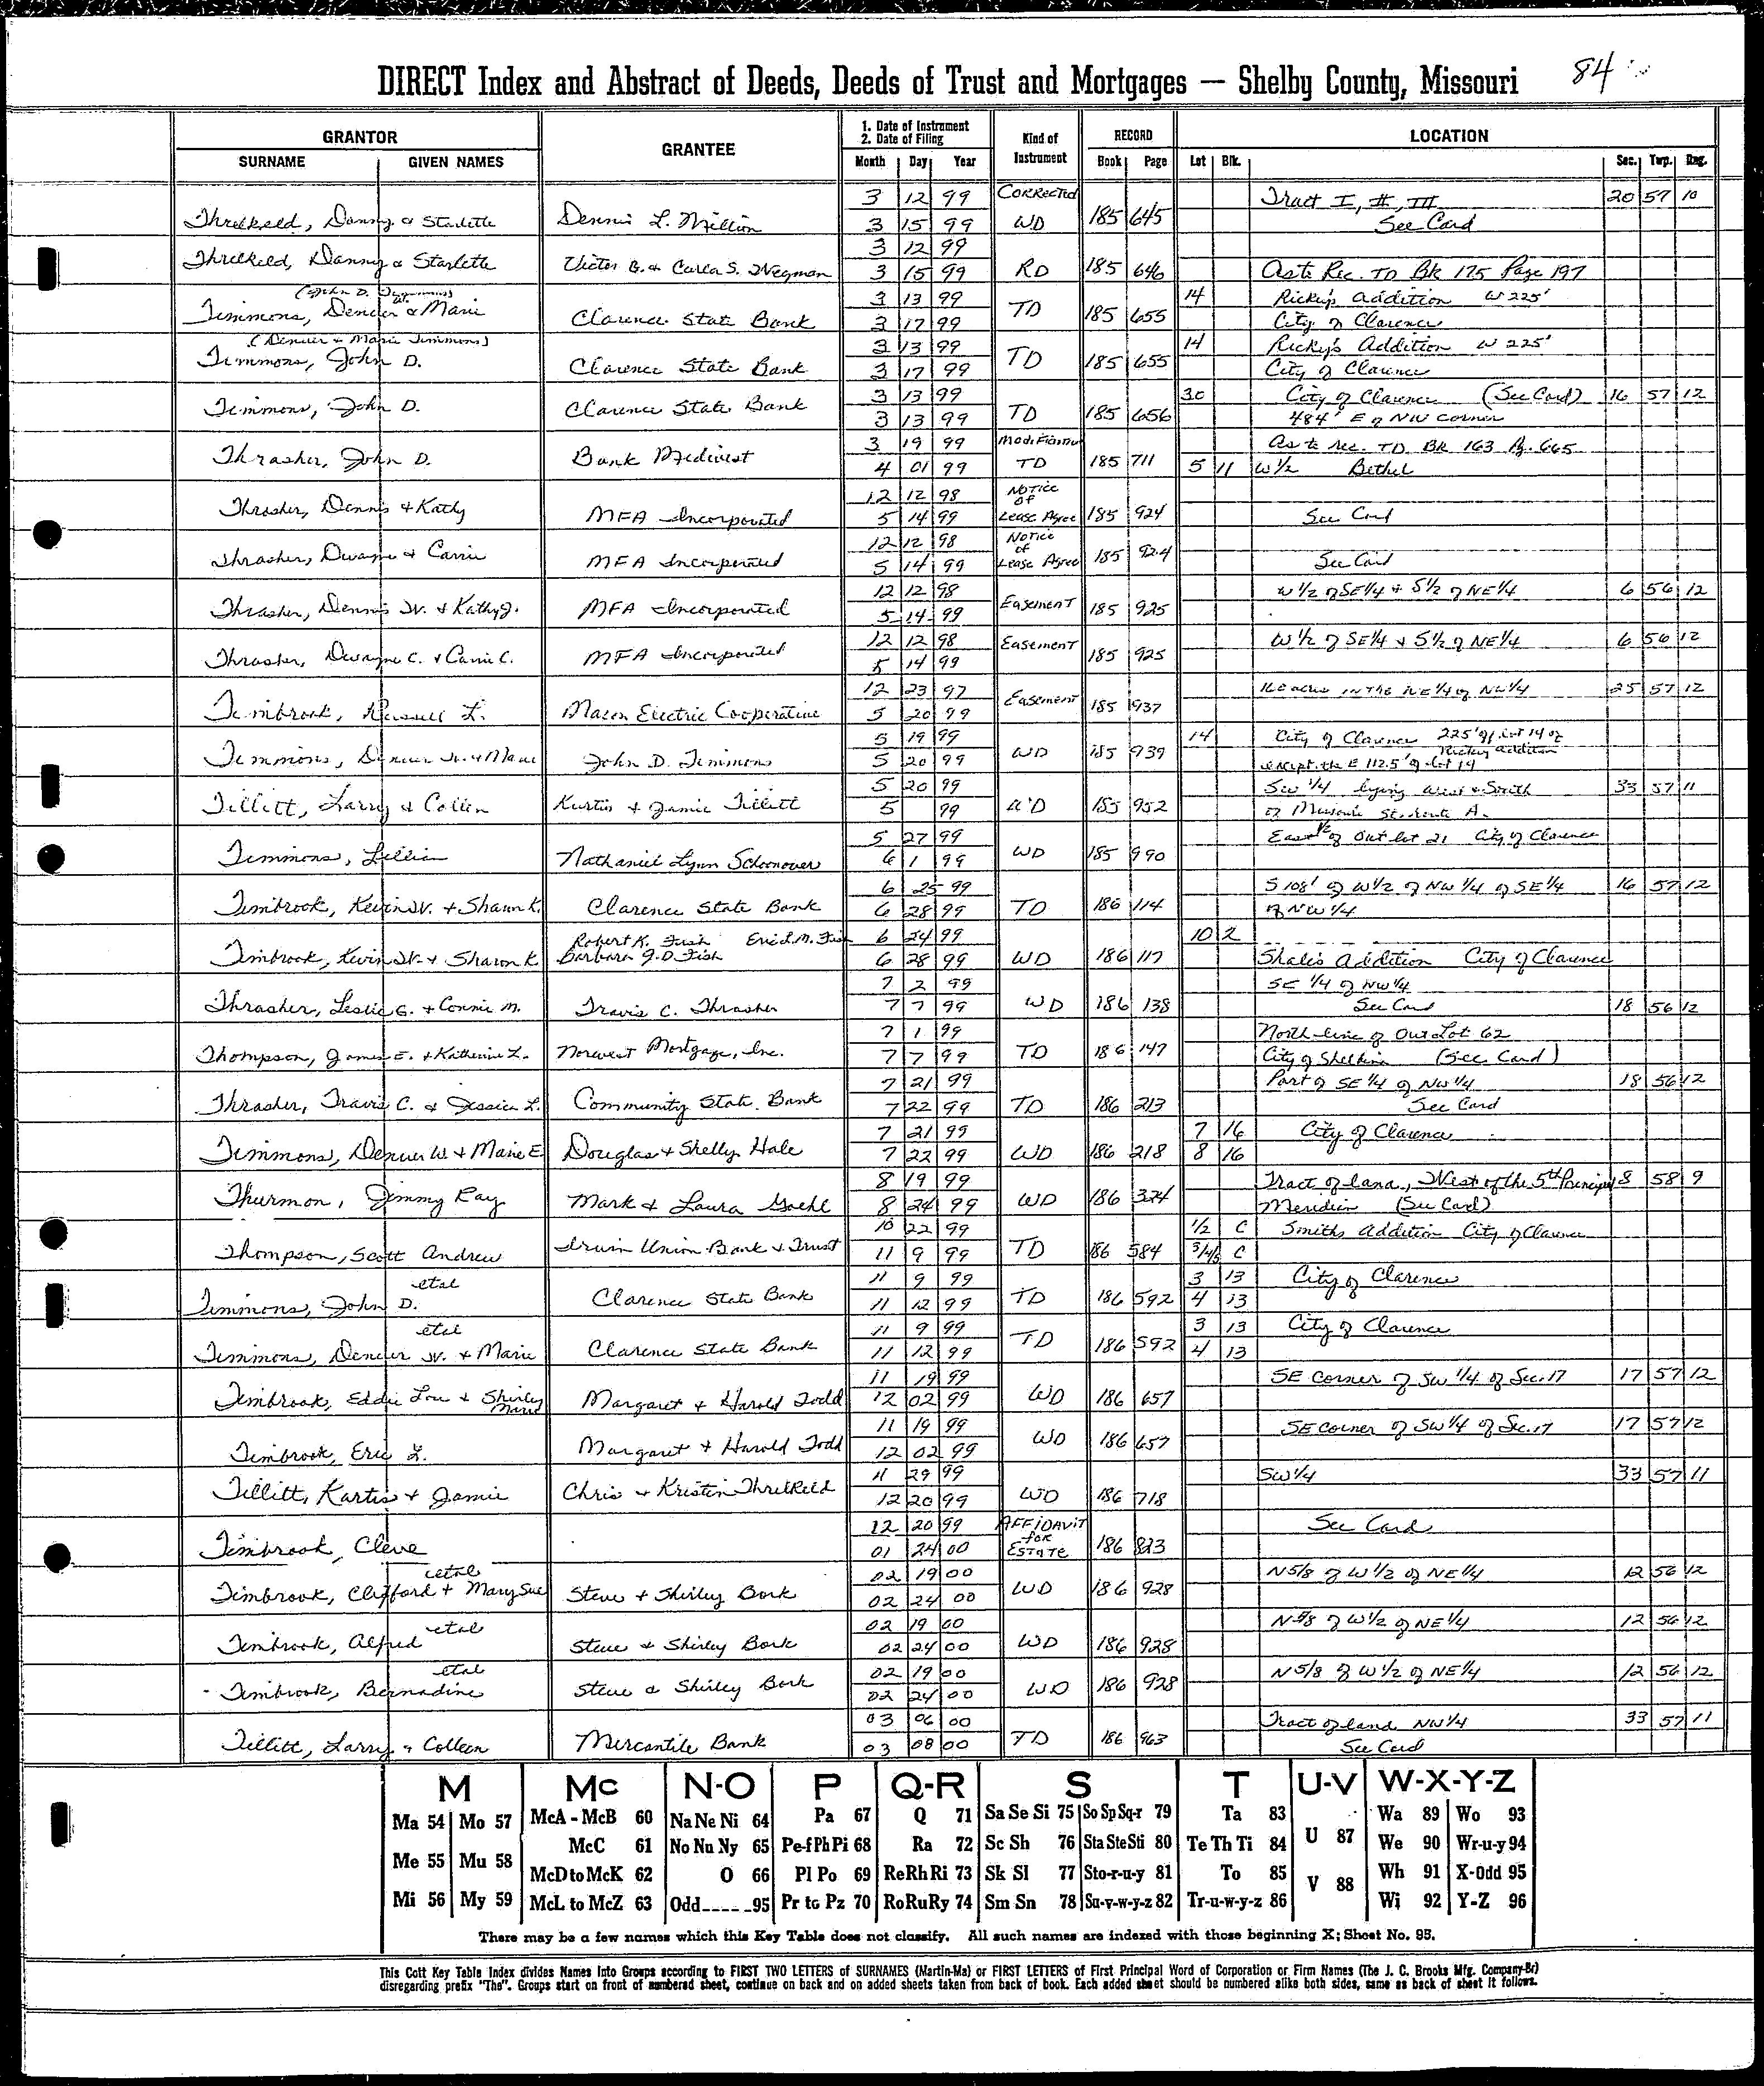 DIRECT Index and Abstract of Deeds, Deeds of Trust and Mortgages — Shelby County, Missouri 84
GRANTOR GRANTEE 1. Date of Instrument 2. Date of Filing Kind of Instrument RECORD LOCATION
SURNAME GIVEN NAMES Month Day Year Book Page Lot Blk. Sec. Twp. Rng.
3 12 99 Corrected Tract I, II, III 20 57 10
Threlkeld, Danny & Starlette Dennis L. Million 3 15 99 WD 185 645 See Card
3 12 99
Threlkeld, Danny & Starlette Victor G. & Carla S. Wegman 3 15 99 RD 185 646 As to Rec. TD Bk 175 Page 197
(John D. Timmons) 3 13 99 14 Ricky's Addition W 225'
Timmons, Denver & Marie Clarence State Bank 3 17 99 TD 185 655 City of Clarence
(Denver & Marie Timmons) 3 13 99 14 Ricky's Addition W 225'
Timmons, John D. Clarence State Bank 3 17 99 TD 185 655 City of Clarence
3 13 99 30 City of Clarence (See Card) 16 57 12
Timmons, John D. Clarence State Bank 3 13 99 TD 185 656 484' E of NW corner
3 19 99 As to rec. TD BK 163 Pg. 665
Thrasher, John D. Bank Midwest 4 01 99 TD 185 711 5 11 W½ Bethel
12 12 98 Notice of
Thrasher, Dennis & Kathy MFA Incorporated 5 14 99 Lease Agree 185 924 See Card
12 12 98 Notice of
Thrasher, Dwayne & Carrie MFA Incorporated 5 14 99 Lease Agree 185 924 See Card
12 12 98 W½ of SE¼ & S½ of NE¼ 6 56 12
Thrasher, Dennis W. & Kathy J. MFA Incorporated 5-14-99 Easement 185 925
12 12 98 W½ of SE¼ & S½ of NE¼ 6 56 12
Thrasher, Dwayne C. & Carrie C. MFA Incorporated 5 14 99 Easement 185 925
12 23 97 acres in the NE¼ of NW¼ 25 57 12
Timbrook, Russell L. Macon Electric Cooperative 5 20 99 Easement 185 937
5 19 99 14 City of Clarence 225' of Lot 14 of Rickey addition
Timmons, Denver W. & Marie John D. Timmons 5 20 99 WD 185 939 except the E 112.5' of Lot 14
5 20 99 SW ¼ lying West & South 33 57 11
Tillitt, Larry & Collen Kurtis & Jamie Tillitt 5 99 WD 185 952 of Missouri St. Route A.
5 27 99 East ½ of Out lot 21 City of Clarence
Timmons, Lillian Nathaniel Lynn Schoonover 6 1 99 WD 185 990
6 25 99 S 108' of W½ of NW ¼ of SE¼ 16 57 12
Timbrook, Kevin W. & Sharon K. Clarence State Bank 6 28 99 TD 186 114 of NW¼
Robert K. Fish Eric L.M. Fish 6 24 99 10 2
Timbrook, Kevin W. & Sharon K Barbara J.D. Fish 6 28 99 WD 186 117 Shale's Addition City of Clarence
7 2 99 SE ¼ of NW¼
Thrasher, Leslie G. & Connie M. Travis C. Thrasher 7 7 99 WD 186 138 See Card 18 56 12
7 1 99 North line of Out Lot 62
Thompson, James E. & Katherine L. Norwest Mortgage, Inc. 7 7 99 TD 186 147 City of Shelbina (See Card)
7 21 99 Part of SE ¼ of NW ¼ 18 56 12
Thrasher, Travis C. & Jessica L. Community State Bank 7 22 99 TD 186 213 See Card
7 21 99 7 16 City of Clarence
Timmons, Denver W & Marie E Douglas & Shelly Hale 7 22 99 WD 186 218 8 16
8 19 99 Tract of land, West of the 5th Principle 8 58 9
Thurmon, Jimmy Ray Mark & Laura Goehl 8 24 99 WD 186 324 Meridian (See Card)
10 22 99 ½ C Smiths Addition City of Clarence
Thompson, Scott Andrew Irwin Union Bank & Trust 11 9 99 TD 186 584 C
etal 11 9 99 3 13 City of Clarence
Timmons, John D. Clarence State Bank 11 12 99 TD 186 592 4 13
etal 11 9 99 3 13 City of Clarence
Timmons, Denver W. & Marie Clarence State Bank 11 12 99 TD 186 592 4 13
11 19 99 SE corner of SW ¼ of Sec. 17 17 57 12
Timbrook, Eddie Lou & Shirley Marie Margaret & Harold Todd 12 02 99 WD 186 657
11 19 99 SE corner of SW ¼ of Sec. 17 17 57 12
Timbrook, Eric L. Margaret & Harold Todd 12 02 99 WD 186 657
11 29 99 SW¼ 33 57 11
Tillitt, Kurtis & Jamie Chris & Kristin Threlkeld 12 20 99 WD 186 718
12 20 99 Affidavit for See Card
Timbrook, Cleve 01 24 00 Estate 186 823
etal 02 19 00 N 5/8 of W½ of NE¼ 12 56 12
Timbrook, Clifford & Mary Sue Steve & Shirley Bork 02 24 00 WD 186 928
etal 02 19 00 N 5/8 of W½ of NE¼ 12 56 12
Timbrook, Alfred Steve & Shirley Bork 02 24 00 WD 186 928
etal 02 19 00 N 5/8 of W½ of NE¼ 12 56 12
Timbrook, Bernadine Steve & Shirley Bork 02 24 00 WD 186 928
03 06 00 Tract of land NW¼ 33 57 11
Tillitt, Larry & Colleen Mercantile Bank 03 08 00 TD 186 963 See Card
M Mc N-O P Q-R S T U-V W-X-Y-Z
Ma 54 Mo 57 McA - McB 60 Na Ne Ni 64 Pa 67 Q 71 Sa Se Si 75 So Sp Sq-r 79 Ta 83 U 87 Wa 89 Wo 93
Me 55 Mu 58 McC 61 No Nu Ny 65 Pe-f Ph Pi 68 Ra 72 Sc Sh 76 Sta Ste Sti 80 Te Th Ti 84 V 88 We 90 Wr-u-y 94
McD to McK 62 O 66 Pl Po 69 Re Rh Ri 73 Sk Sl 77 Sto-r-u-y 81 To 85 Wh 91 X-Odd 95
Mi 56 My 59 McL to McZ 63 Odd-----95 Pr to Pz 70 Ro Ru Ry 74 Sm Sn 78 Su-v-w-y-z 82 Tr-u-w-y-z 86 Wi 92 Y-Z 96
There may be a few names which this Key Table does not classify. All such names are indexed with those beginning X; Sheet No. 95.
This Cott Key Table Index divides Names Into Groups according to FIRST TWO LETTERS of SURNAMES (Martin-Ma) or FIRST LETTERS of First Principal Word of Corporation or Firm Names (The J. C. Brooks Mfg. Company-Br)
disregarding prefix "The". Groups start on front of numbered sheet, continue on back and on added sheets taken from back of book. Each added sheet should be numbered alike both sides, same as back of sheet it follows.